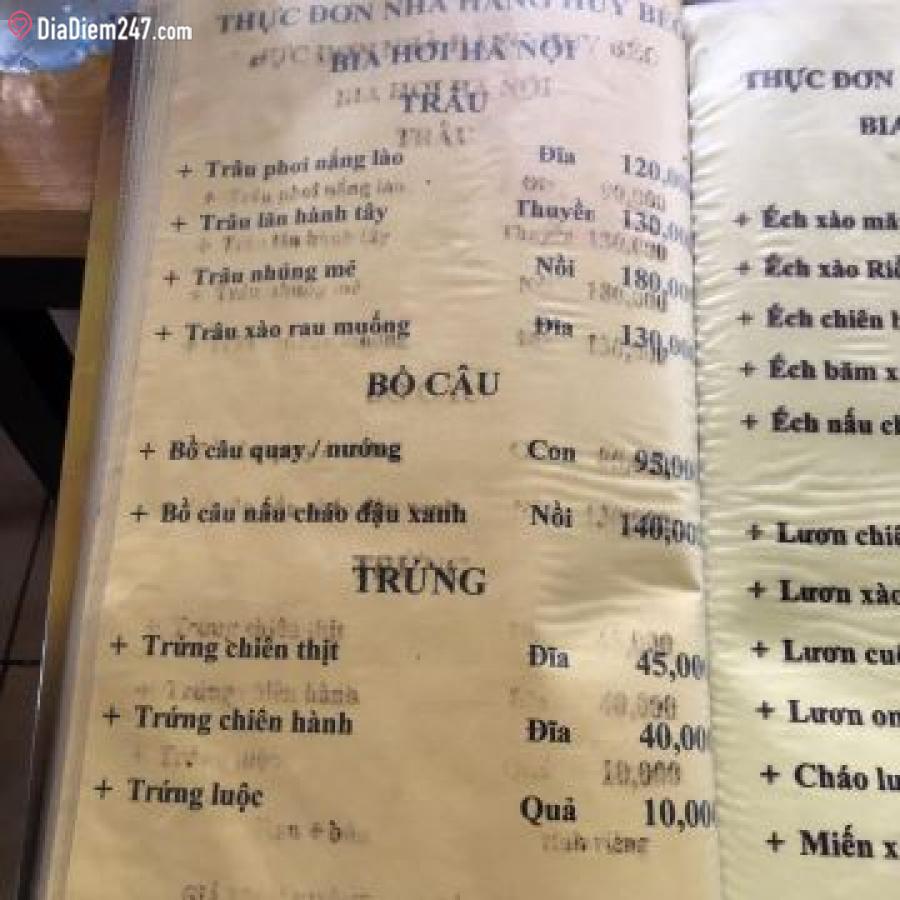 DiaDiem247.com
THỰC ĐƠN NHÀ HÀNG HUY BÉO
BIA HƠI HÀ NỘI
TRÂU
+ Trâu phơi nắng lào Đĩa 120,00
+ Trâu lăn hành tây Thuyền 130,00
+ Trâu nhúng mẻ Nồi 180,00
+ Trâu xào rau muống Đĩa 130,00
BỒ CÂU
+ Bồ câu quay / nướng Con 95,00
+ Bồ câu nấu cháo đậu xanh Nồi 140,00
TRỨNG
+ Trứng chiên thịt Đĩa 45,00
+ Trứng chiên hành Đĩa 40,00
+ Trứng luộc Quả 10,000
THỰC ĐƠN
BIA
+ Ếch xào mă
+ Ếch xào Riề
+ Ếch chiên
+ Ếch băm x
+ Ếch nấu ch
+ Lươn chiê
+ Lươn xào
+ Lươn cuố
+ Lươn om
+ Cháo lư
+ Miến x